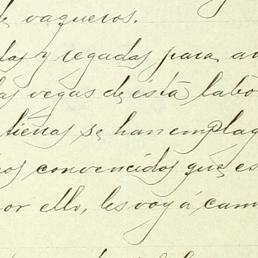 de vaqueros.
das y regadas para
las vegas de esta labo
tierras se han emplea
nos convencidos que es
por ello, les voy á cam